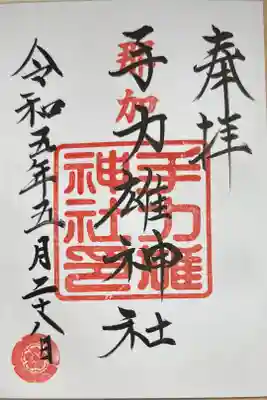 奉拝
手力雄神社
那加
手力雄
神社印
令和五年五月二十八日